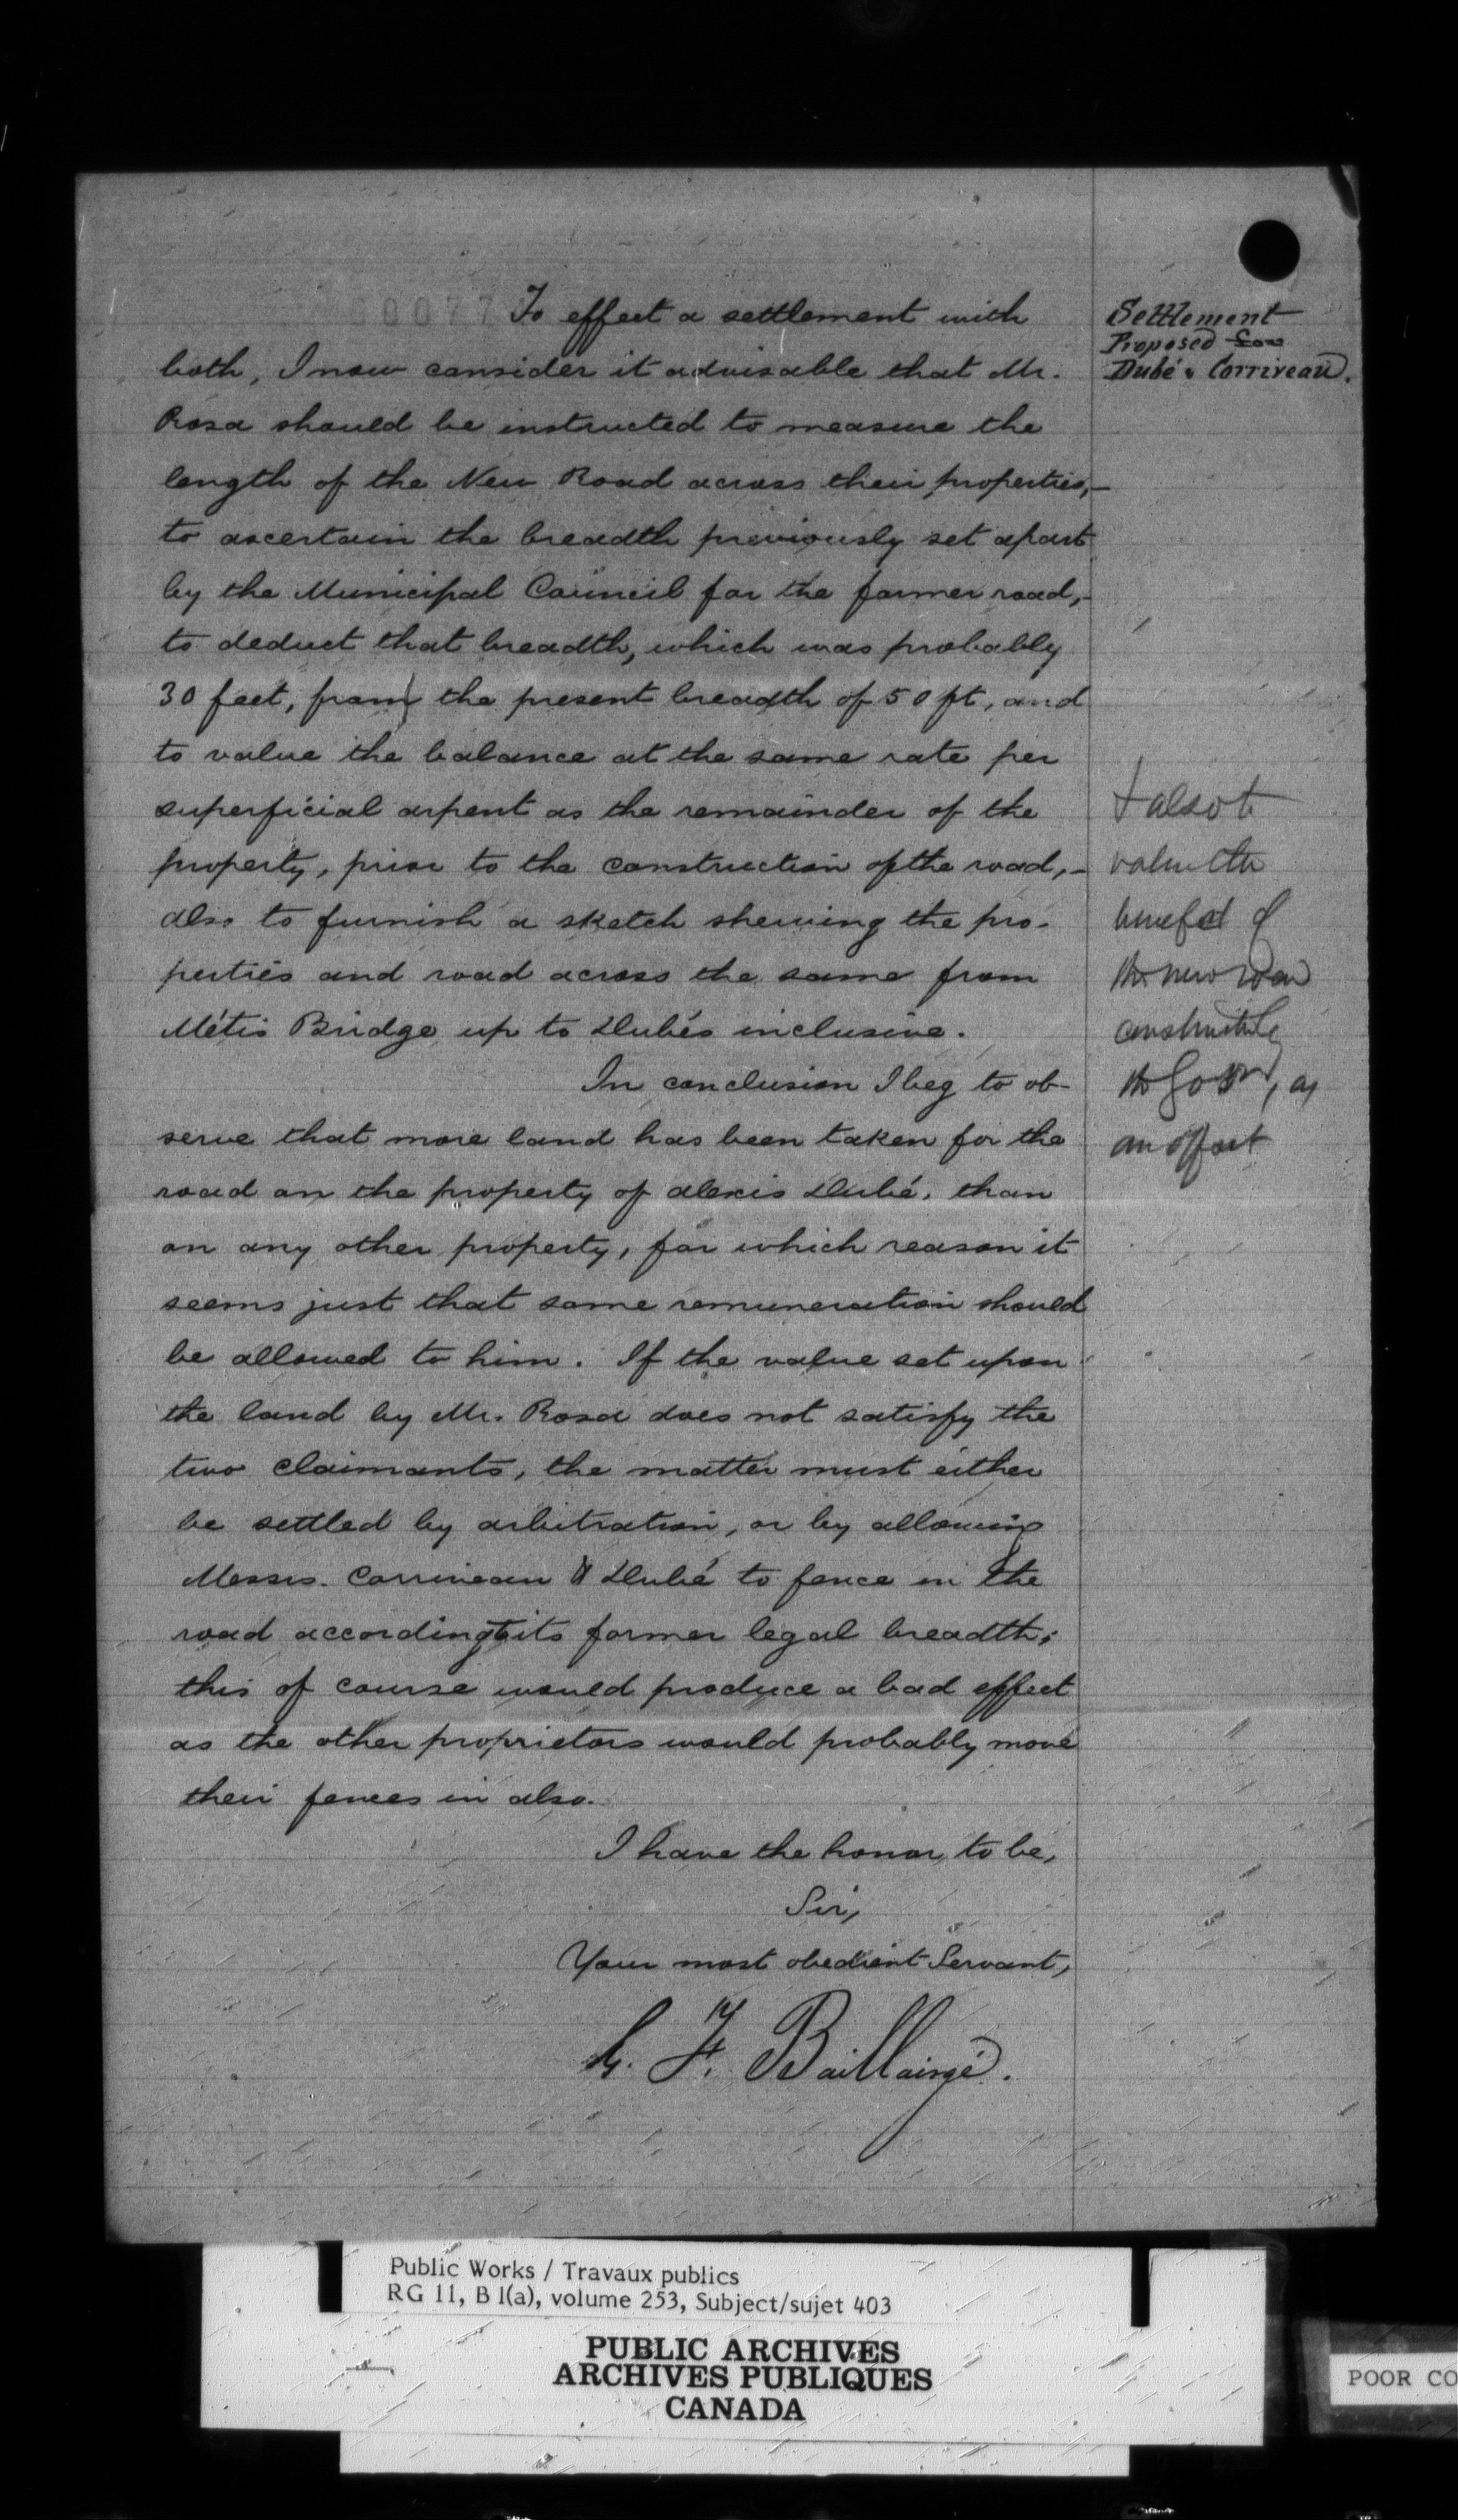 To effect a settlement with
both, I now consider it advisable that Mr.
Rosa should be instructed to measure the
length of the New Road across their properties,–
to ascertain the breadth previously set apart
by the Municipal Council for the former road,–
to deduct that breadth, which was probably
30 feet, from the present breadth of 50 ft, and
to value the balance at the same rate per
superficial arpent as the remainder of the
property, prior to the construction of the road,–
also to furnish a sketch shewing the pro-
perties and road across the same from
Métis Bridge up to Dubés inclusive.
In conclusion I beg to ob-
serve that more land has been taken for the
road on the property of Alexis Dubé, than
on any other property, for which reason it
seems just that some remuneration should
be allowed to him. If the value set upon
the land by Mr. Rosa does not satisfy the
two claimants, the matter must either
be settled by arbitration, or by allowing
Messrs. Corriveau & Dubé to fence in the
road according to its former legal breadth;
this of course would produce a bad effect
as the other proprietors would probably move
their fences in also.
I have the honor to be,
Sir,
Your most obedient Servant,
G. F. Baillairgé.
Settlement
Proposed for
Dubé & Corriveau.
+ also to
value the
benefit of
the new road
constructed by
the Govt, as
an offset
Public Works / Travaux publics
RG 11, B 1(a), volume 253, Subject/sujet 403
PUBLIC ARCHIVES
ARCHIVES PUBLIQUES
CANADA
POOR CO